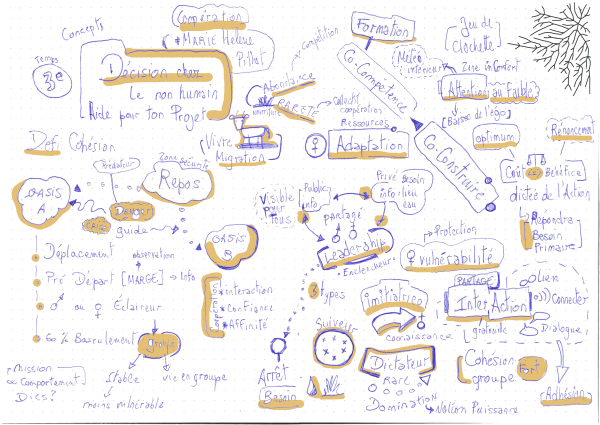 Concepts
Coopération
* MARIE Hélène
Pillot
Temps
3e
Décision chez
Le non humain
Aide pour ton Projet
Abondance
RARETÉ
Compétition
Collectif
coopération
Ressources
Vivre
Migration
♀
Adaptation
Formation
Co-Compétence
Co-Construire
Météo
intérieur
Jeu de
Clochette
Zone inconfort
Attention au faible?
[Baisse de l'égo]
optimum
Renoncement
Coût
Bénéfice
dictée de l'Action
Répondre
Besoin
Primaire
Déf Cohésion
Prédateur
Zone Sécurité
Repos
OASIS
A
DANGER
guide
OASIS
B
Déplacement
observation
Pré Départ [MARGE] → Info
♂ ou ♀ Éclaireur
60 % Basculement
groupe
Stable
vie en groupe
moins vulnérable
Mission
Comportement
Dics?
* interaction
* Confiance
* Affinité
Visible
par
Tous
Public
info
Privé Besoin
info lieu
eau
partagé
Leadership
Enclencheur
3 types
Initiatrice
connaissance
Suiveur
Dictateur
Rare
Domination
Notion Puissance
Arrêt
Besoin
Protection
♀ vulnérabilité
PARTAGE
InterAction
gratitude
Lien
Connecter
Dialogue
Cohésion
groupe
Fort
Adhésion